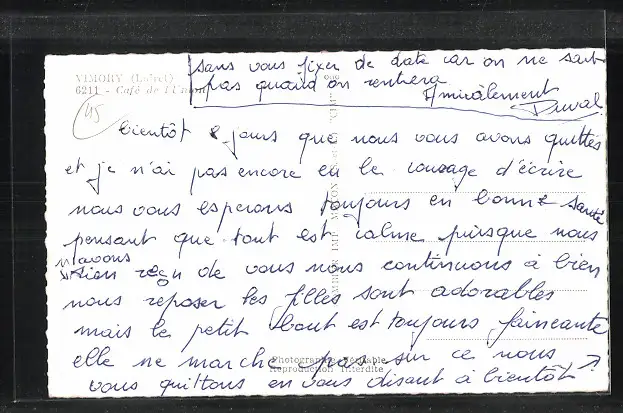 sans vous fixer de date car on ne sait
pas quand on rentrera
Amicalement
Duval
VIMORY (Loiret)
6211 - Café de l'Union
45
bientôt 8 jours que nous vous avons quittés
et je n'ai pas encore eu le courage d'écrire
nous vous esperons toujours en bonne santé
pensant que tout est calme puisque nous
n'avons
rien reçu de vous nous continuons à bien
nous reposer les filles sont adorables
mais le petit bout est toujours faineante
elle ne marche pas sur ce nous
vous quittons en vous disant à bientôt
Photographie Véritable
Reproduction Interdite